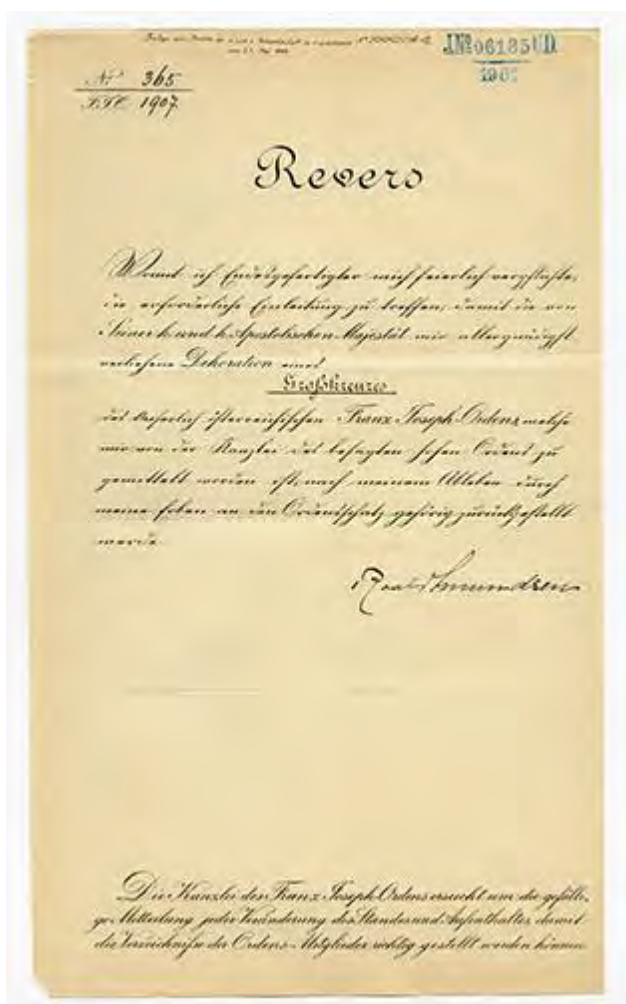 J.№ 06135 UD.
190
№ 365
F.J.O. 1907
Revers
Womit ich Endesgefertigter mich feierlich verpflichte,
die erforderliche Einleitung zu treffen, damit die von
Seiner k. und k. Apostolischen Majestät mir allergnädigst
verliehene Dekoration eines
Großkreuzes
des kaiserlich österreichischen Franz Joseph-Ordens, welche
mir von der Kanzlei des besagten hohen Ordens zu
gemittelt worden ist, nach meinem Ableben durch
meine Erben an den Ordensschatz gehörig zurückgestellt
werde.
Roald Amundsen
Die Kanzlei des Franz Joseph-Ordens ersucht um die gefälli-
ge Mitteilung jeder Veränderung des Standes und Aufenthaltes, damit
die Verzeichnisse der Ordens-Mitglieder richtig gestellt werden können.